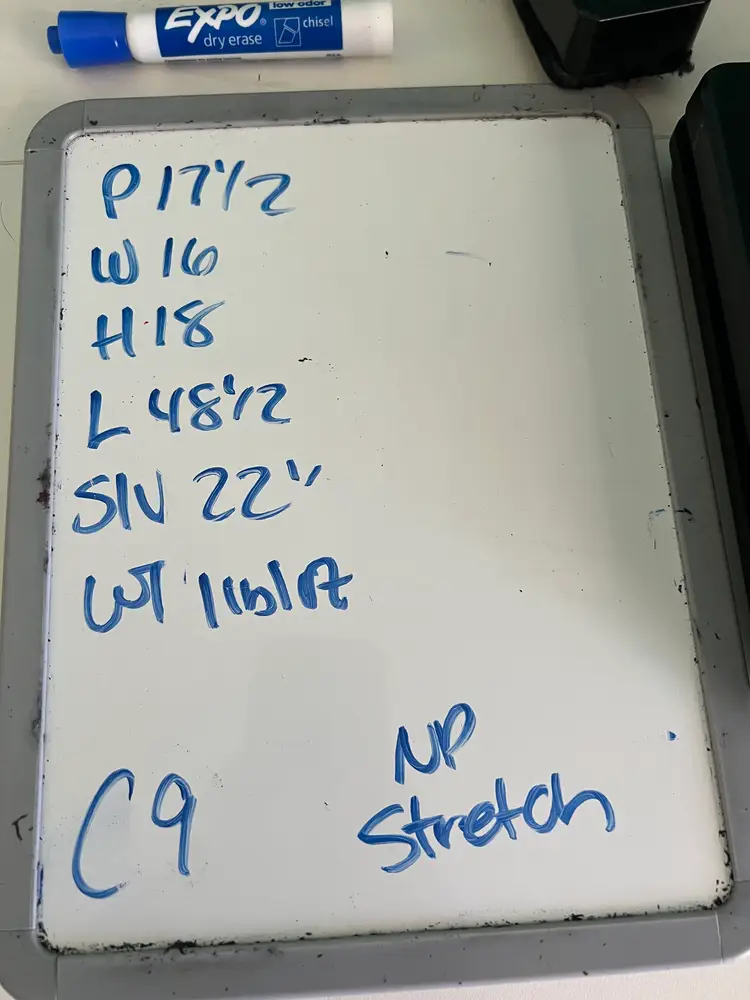 EXPO® low odor
dry erase chisel
P 17 1/2
W 16
H 18
L 48 1/2
SIV 22"
WT 1lb1oz
C9
NP
Stretch